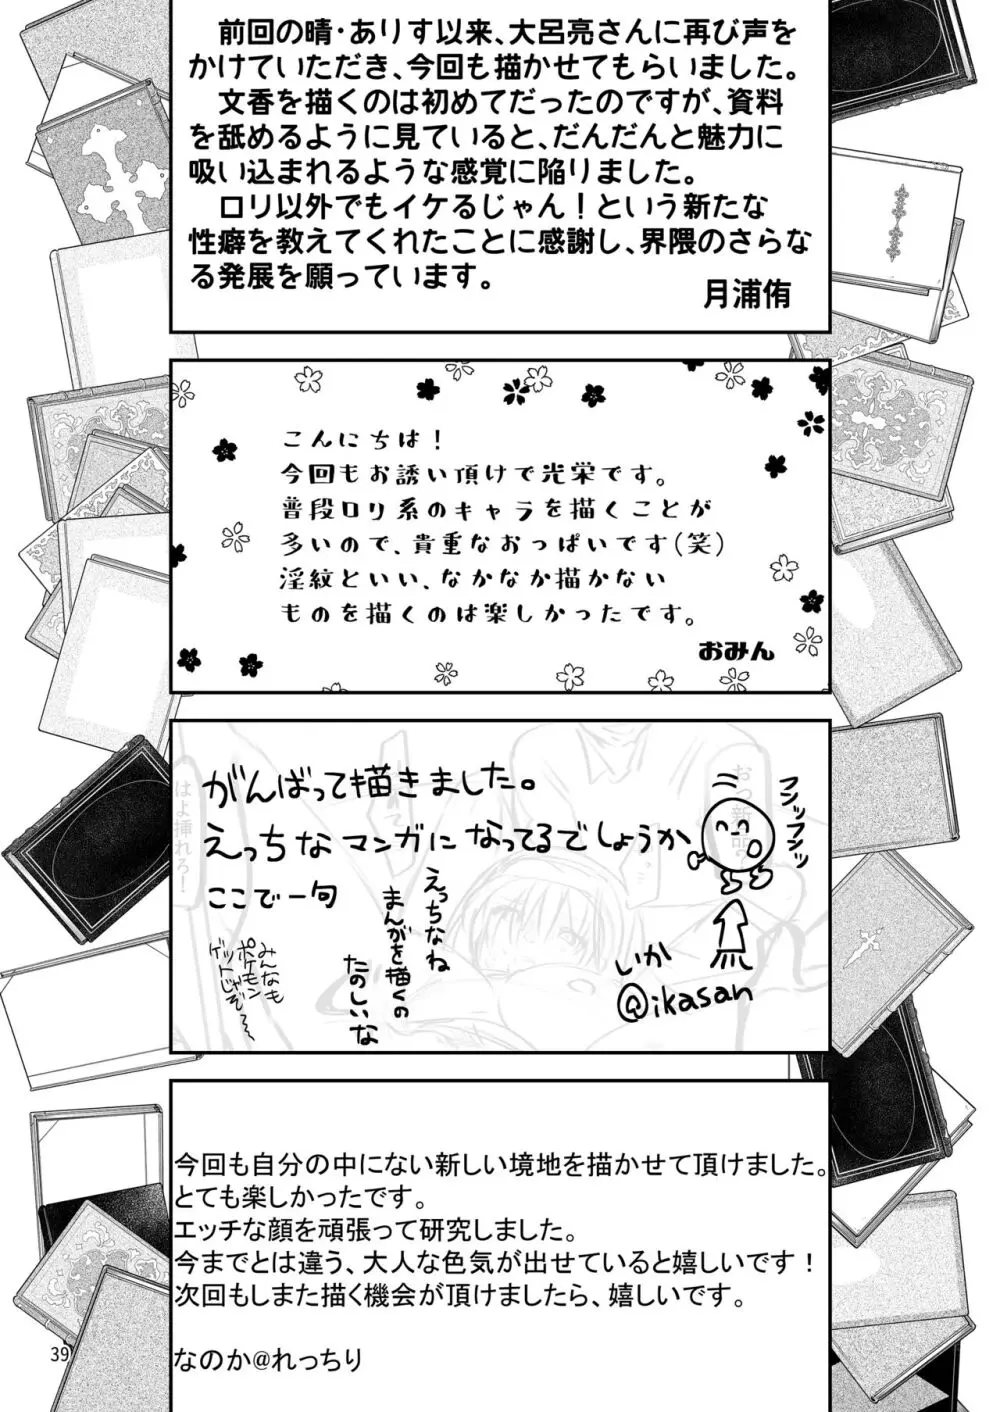 前回の晴・ありす以来、大呂亮さんに再び声を
かけていただき、今回も描かせてもらいました。
文香を描くのは初めてだったのですが、資料
を舐めるように見ていると、だんだんと魅力に
吸い込まれるような感覚に陥りました。
ロリ以外でもイケるじゃん！という新たな
性癖を教えてくれたことに感謝し、界隈のさらな
る発展を願っています。
月浦侑
こんにちは！
今回もお誘い頂けて光栄です。
普段ロリ系のキャラを描くことが
多いので、貴重なおっぱいです(笑)
淫紋といい、なかなか描かない
ものを描くのは楽しかったです。
おみん
がんばって描きました。
えっちなマンガになってるでしょうか
フンッフンッ
ここで一句
えっちなね
まんがを描くの
たのしいな
みんなも
ポケモン
ゲットじゃぞ～
いか
@ikasan
はよ挿れろ！
今回も自分の中にない新しい境地を描かせて頂けました。
とても楽しかったです。
エッチな顔を頑張って研究しました。
今までとは違う、大人な色気が出せていると嬉しいです！
次回もしまた描く機会が頂けましたら、嬉しいです。
なのか@れっちり
39